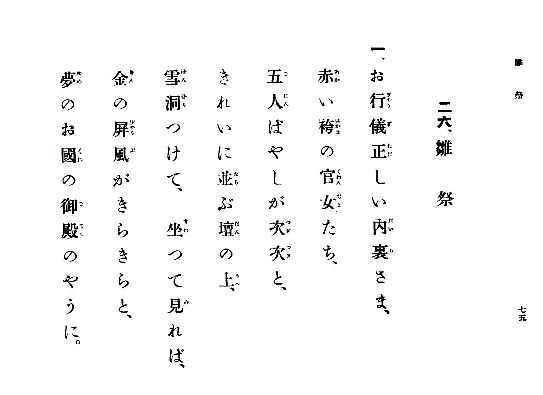 雛祭
二六、雛祭
一、お行儀正しい内裏さま、
赤い袴の官女たち、
五人ばやしが次次と、
きれいに並ぶ壇の上、
雪洞つけて、坐つて見れば、
金の屏風がきらきらと、
夢のお國の御殿のやうに。
七五